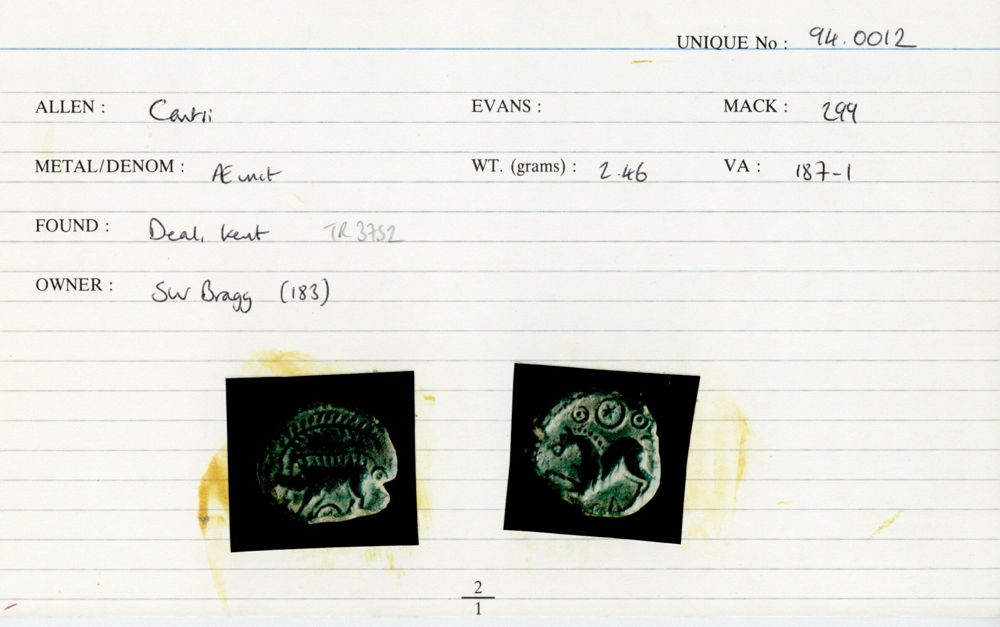 UNIQUE No : 94.0012
ALLEN : Cantii EVANS : MACK : 299
METAL/DENOM : Æ unit WT. (grams) : 2.46 VA : 187-1
FOUND : Deal, Kent TR3752
OWNER : SW Bragg (183)
2
1